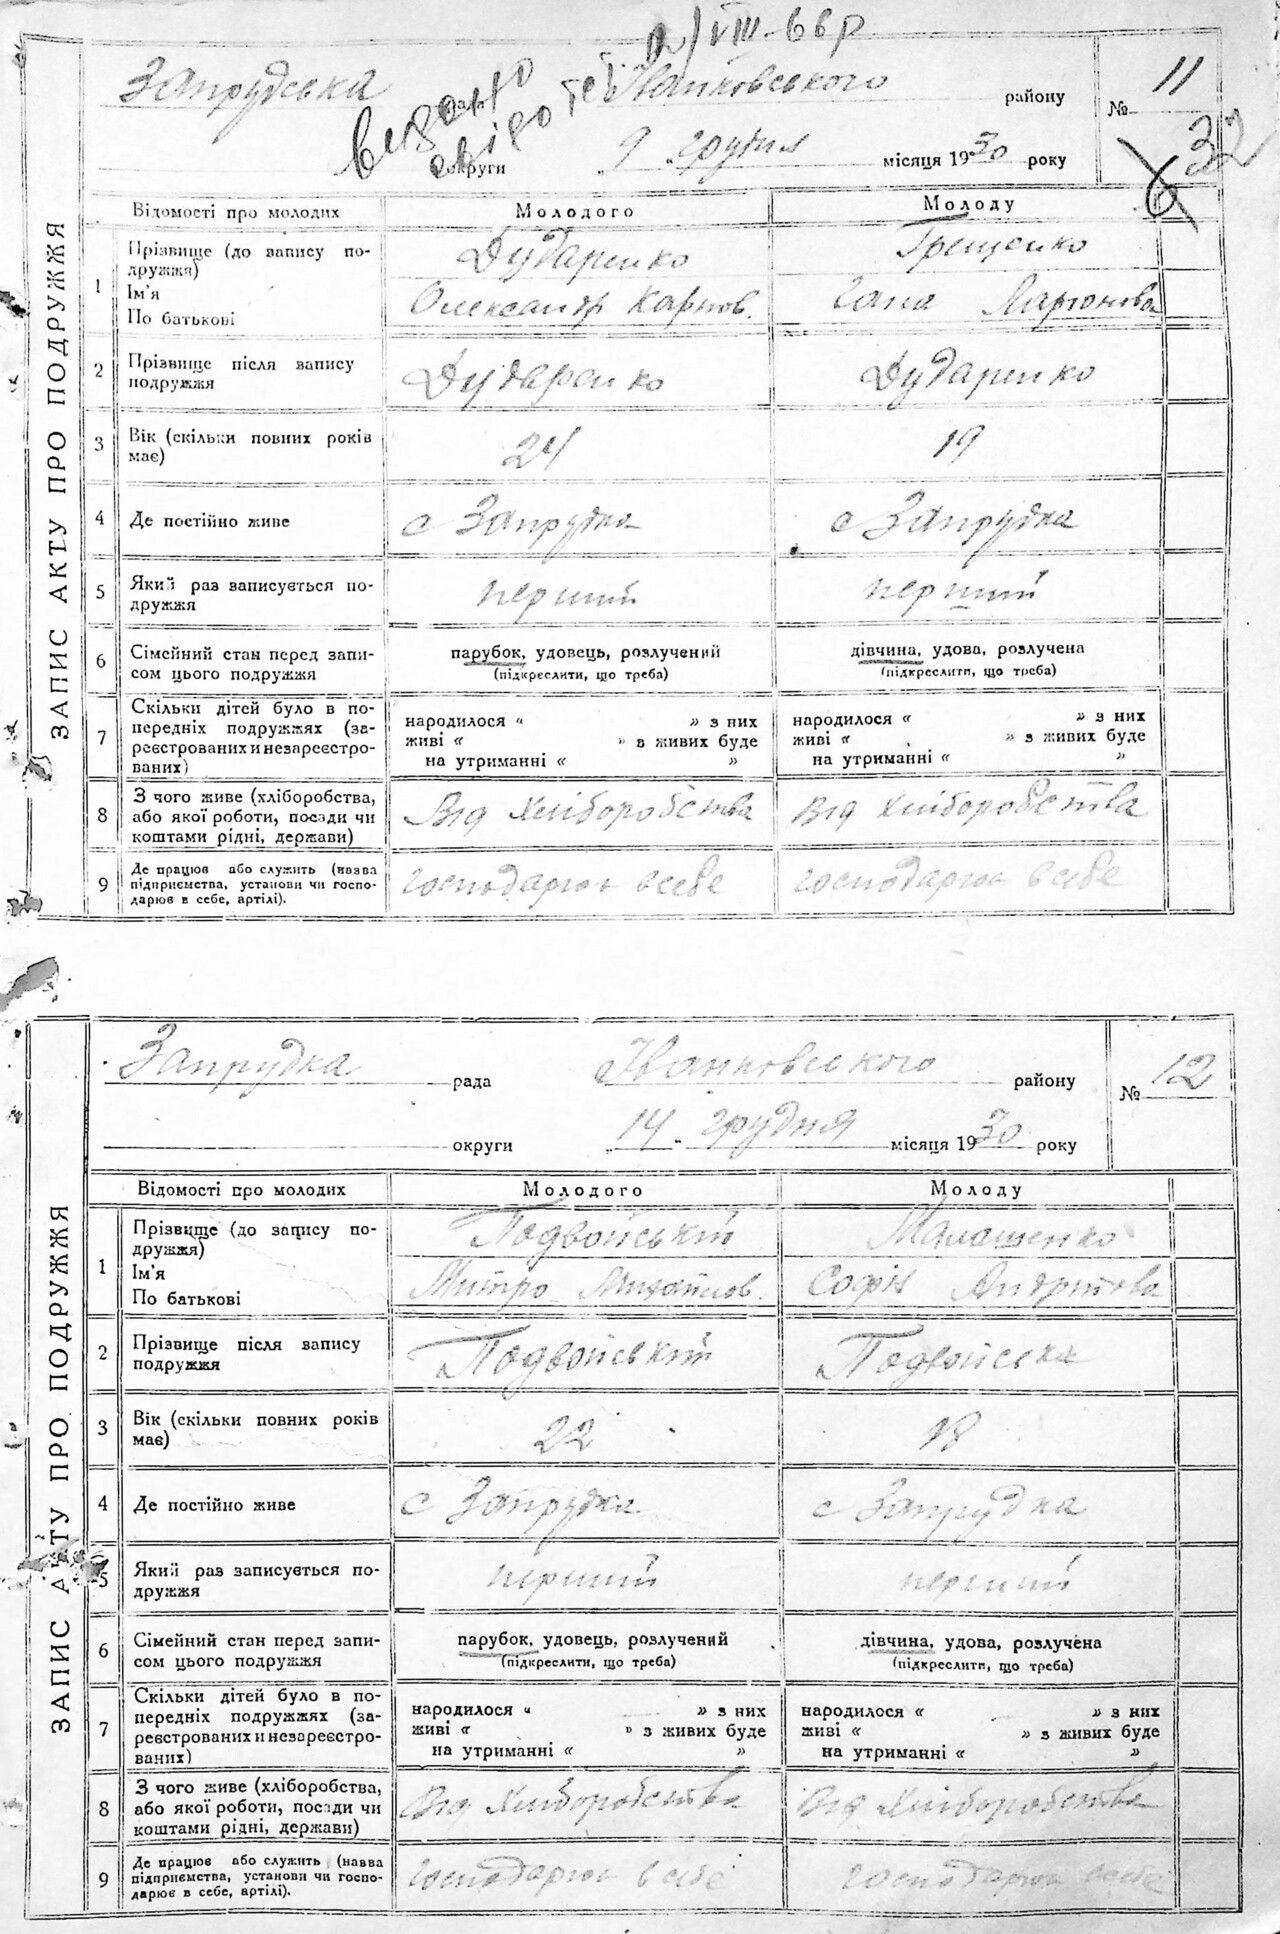 2/VIII-66р
видано свідоте
Запрудська рада Іванковського району № 11
32
округи „ 9 „ грудня місяця 1930 року
ЗАПИС АКТУ ПРО ПОДРУЖЖЯ
Відомості про молодих Молодого Молоду
1 Прізвище (до запису подружжя) Дударенко Грещенко
Ім'я По батькові Олександр Карпов. Гапа Ларіонова
2 Прізвище після запису подружжя Дударенко Дударенко
3 Вік (скільки повних років має) 24 19
4 Де постійно живе с Запрудка с Запрудка
5 Який раз записується подружжя перший перший
6 Сімейний стан перед записом цього подружжя парубок, удовець, розлучений (підкреслити, що треба) дівчина, удова, розлучена (підкреслити, що треба)
7 Скільки дітей було в попередніх подружжях (зареєстрованих и незареєстрованих) народилося “ ” з них живі “ ” з живих буде на утриманні “ ” народилося “ ” з них живі “ ” з живих буде на утриманні “ ”
8 З чого живе (хліборобства, або якої роботи, посади чи коштами рідні, держави) Від хліборобства Від хліборобства
9 Де працює або служить (назва підприємства, установи чи господарює в себе, артілі). господарює в себе господарює в себе
Запрудка рада Іванковського району № 12
округи „ 14 „ грудня місяця 1930 року
ЗАПИС АКТУ ПРО ПОДРУЖЖЯ
Відомості про молодих Молодого Молоду
1 Прізвище (до запису подружжя) Подвойський Малашенко
Ім'я По батькові Митро Михайлов. Софія Андріїова
2 Прізвище після запису подружжя Подвойський Подвойська
3 Вік (скільки повних років має) 22 18
4 Де постійно живе с Запрудка с Запрудка
5 Який раз записується подружжя перший перший
6 Сімейний стан перед записом цього подружжя парубок, удовець, розлучений (підкреслити, що треба) дівчина, удова, розлучена (підкреслити, що треба)
7 Скільки дітей було в попередніх подружжях (зареєстрованих и незареєстрованих) народилося “ ” з них живі “ ” з живих буде на утриманні “ ” народилося “ ” з них живі “ ” з живих буде на утриманні “ ”
8 З чого живе (хліборобства, або якої роботи, посади чи коштами рідні, держави) Від хліборобства Від хліборобства
9 Де працює або служить (назва підприємства, установи чи господарює в себе, артілі). господарює в себе господарює в себе